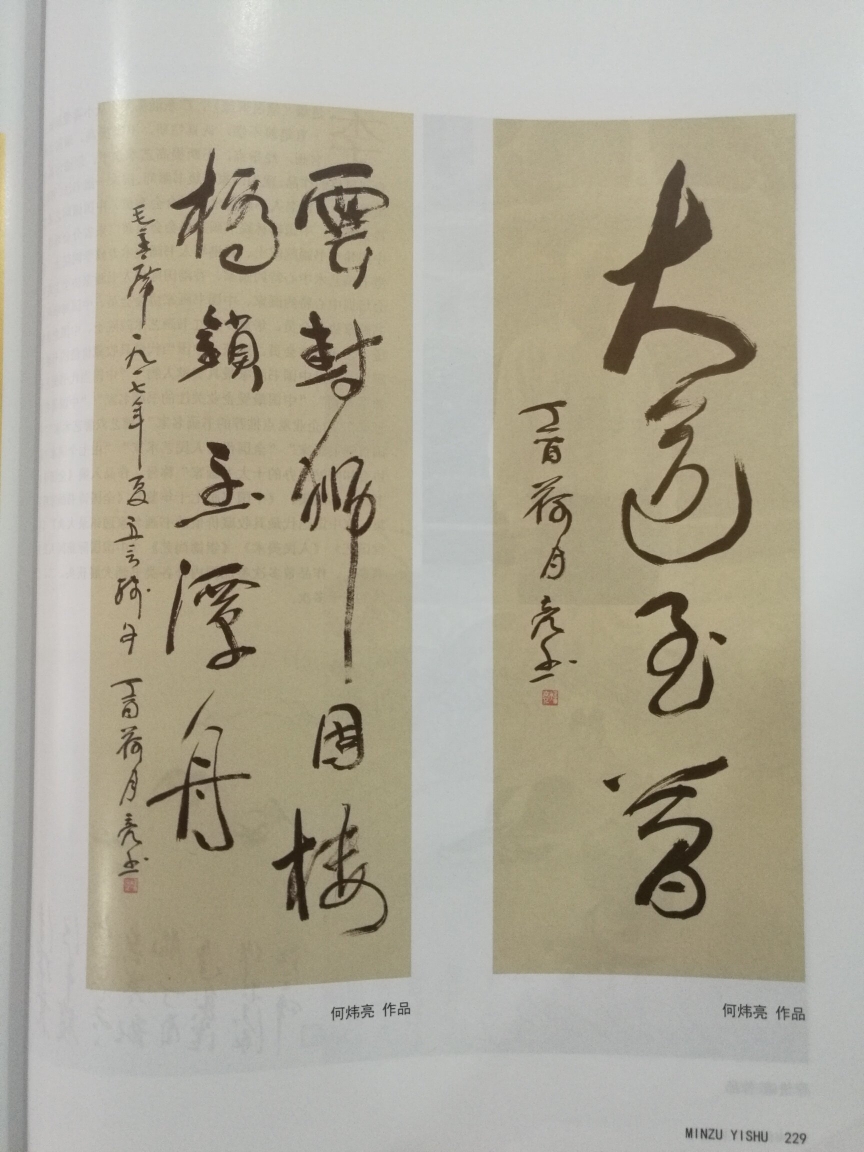 雲封狮固楼
橋鎖玉潭舟
毛主席一九一七年夏五言联句 丁酉荷月亮书
何炜亮 作品
大道至简
丁酉荷月亮书
何炜亮 作品
MINZU YISHU 229